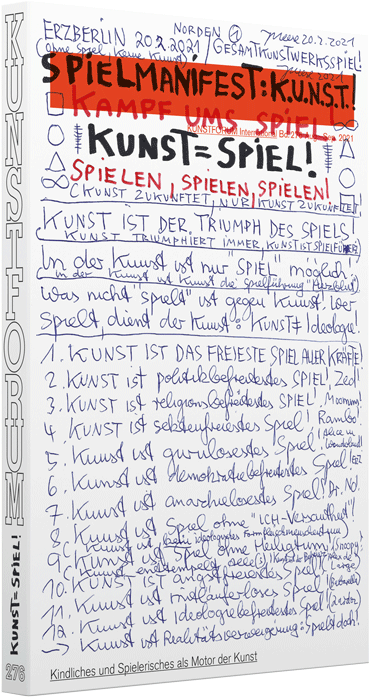 KUNSTFORUM
KUNST=SPIEL!
276
ERZBERLIN 20.2.2021 NORDEN ① Meese 20.2.2021
(ohne Spiel, keine Kunst) GESAMTKUNSTWERKSSPIEL!
Meese 2021
SPIELMANIFEST: K.U.N.S.T.!
KAMPF UMS SPIEL!
KUNSTFORUM International Bd. 276 Aug.–Sep. 2021
KUNST=SPIEL!
SPIELEN, SPIELEN, SPIELEN!
(KUNST ZUKUNFTET, NUR KUNST ZUKUNFTET)
KUNST IST DER TRIUMPH DES SPIELS!
KUNST TRIUMPHIERT IMMER, KUNST IST
In der Kunst ist nur "SPIEL" möglich!
in der Kunst ist Kunst die Spielführung
Was nicht "spielt" ist gegen Kunst! Wer
spielt, dient der Kunst: KUNST≠Ideologie!
1. KUNST IST DAS FREIESTE SPIEL ALLER KRÄFTE!
2. KUNST ist politikbefreitestes SPIEL! Zed!
3. KUNST ist religionsbefreitestes SPIEL!
4. KUNST ist sektenfreiestes Spiel! Rambo!
5. Kunst ist gurulosestes Spiel! (Alice in Wonderland)
6. Kunst ist demokratiebefreitestes Spiel!
7. Kunst ist anarchielosestes Spiel! Dr. No!
8. Kunst ist Spiel ohne "ICH-Versautheit"!
9. Kunst ist Spiel ohne Heiligtum! Snoopy!
10. KUNST IST angstfreiestes Spiel!
11. Kunst ist mitläuferloses Spiel!
12. Kunst ist Ideologiebefreitestes Spiel!
Kunst ist Realitätsverweigerung: Spielt doch!
Kindliches und Spielerisches als Motor der Kunst